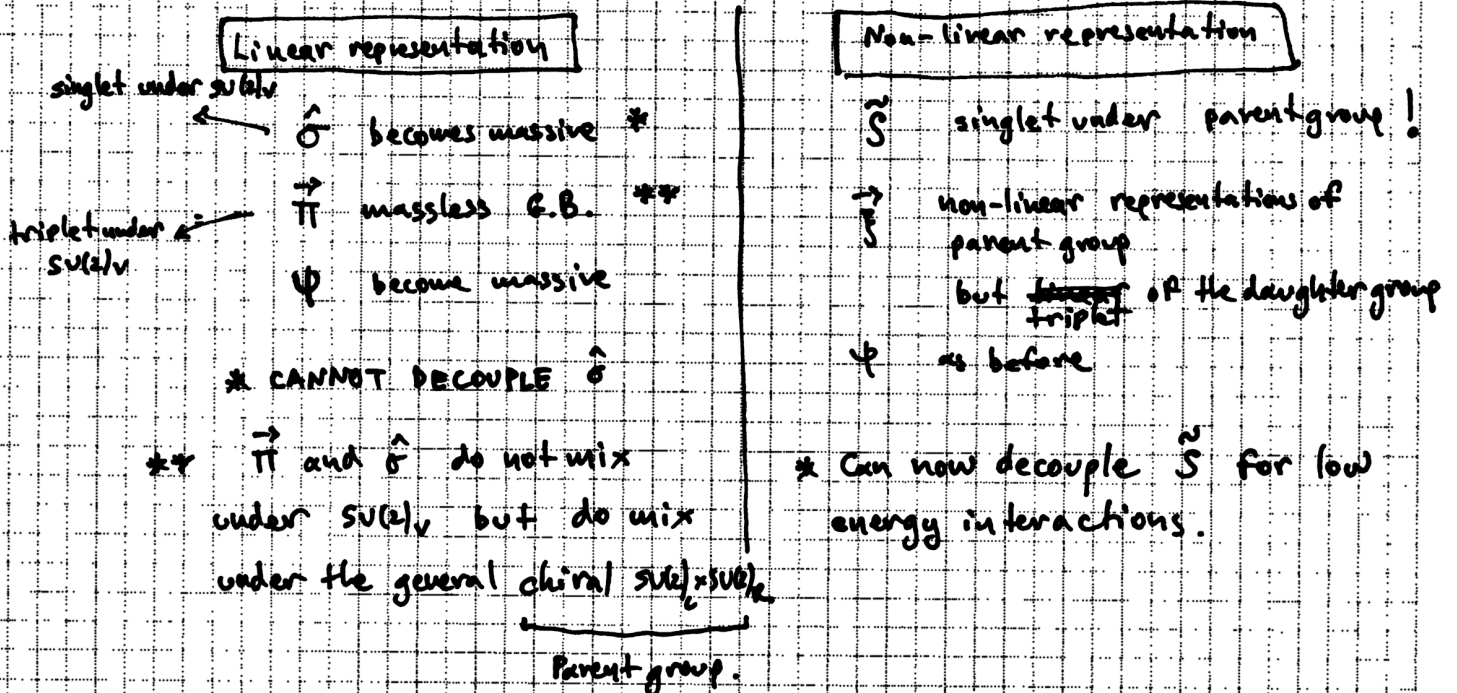 Linear representation
singlet under SU(2)v
σ̂ becomes massive *
π⃗ massless G.B. **
triplet under
SU(2)v
ψ become massive
* CANNOT DECOUPLE σ̂
** π⃗ and σ̂ do not mix
under SU(2)v but do mix
under the general chiral SU(2)L×SU(2)R
Parent group.
Non-linear representation
S̃ singlet under parent group !
ξ⃗ non-linear representations of
parent group
but of the daughter group
triplet
ψ as before
* Can now decouple S̃ for low
energy interactions.